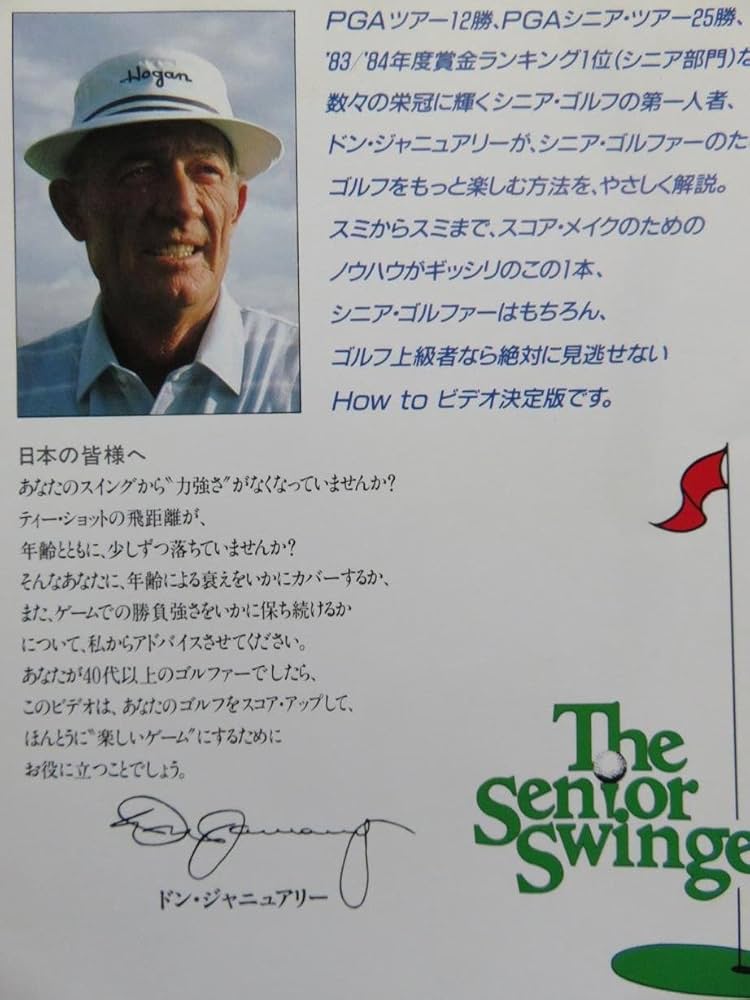 Hogan
PGAツアー12勝、PGAシニア・ツアー25勝、
'83/'84年度賞金ランキング1位(シニア部門)な
数々の栄冠に輝くシニア・ゴルフの第一人者、
ドン・ジャニュアリーが、シニア・ゴルファーのた
ゴルフをもっと楽しむ方法を、やさしく解説。
スミからスミまで、スコア・メイクのための
ノウハウがギッシリのこの1本、
シニア・ゴルファーはもちろん、
ゴルフ上級者なら絶対に見逃せない
How to ビデオ決定版です。
日本の皆様へ
あなたのスイングから“力強さ”がなくなっていませんか?
ティー・ショットの飛距離が、
年齢とともに、少しずつ落ちていませんか?
そんなあなたに、年齢による衰えをいかにカバーするか、
また、ゲームでの勝負強さをいかに保ち続けるか
について、私からアドバイスさせてください。
あなたが40代以上のゴルファーでしたら、
このビデオは、あなたのゴルフをスコア・アップして、
ほんとうに“楽しいゲーム”にするために
お役に立つことでしょう。
Don January
ドン・ジャニュアリー
The
Senior
Swinge